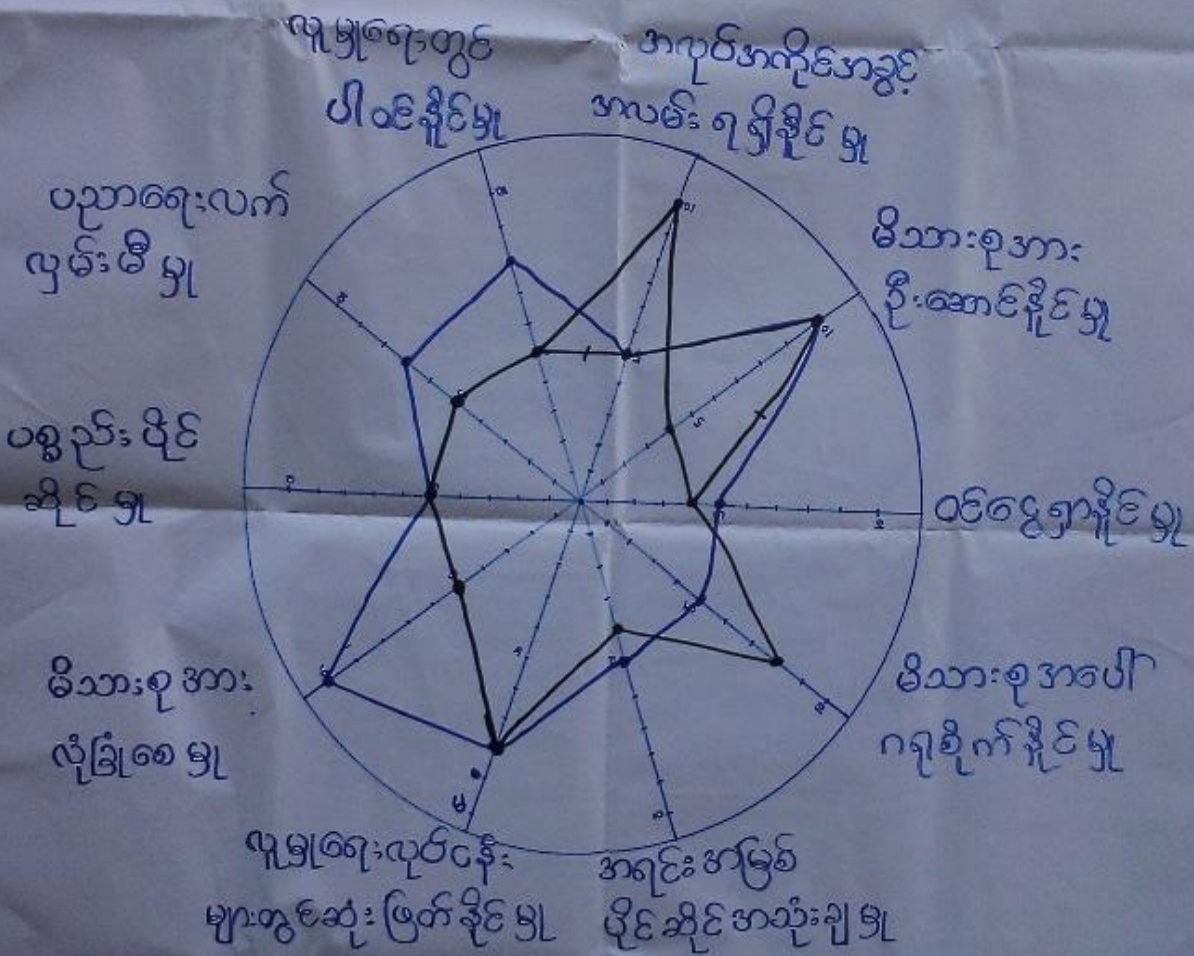 လူမှုရေးတွင်
ပါဝင်နိုင်မှု
အလုပ်အကိုင်အခွင့်
အလမ်းရရှိနိုင်မှု
မိသားစုအား
ဦးဆောင်နိုင်မှု
ဝင်ငွေရှာနိုင်မှု
မိသားစုအပေါ်
ဂရုစိုက်နိုင်မှု
အရင်းအမြစ်
ပိုင်ဆိုင်အသုံးချမှု
လူမှုရေးလုပ်ငန်း
များတွင်ဆုံးဖြတ်နိုင်မှု
မိသားစုအား
လုံခြုံစေမှု
ပစ္စည်းပိုင်
ဆိုင်မှု
ပညာရေးလက်
လှမ်းမီမှု